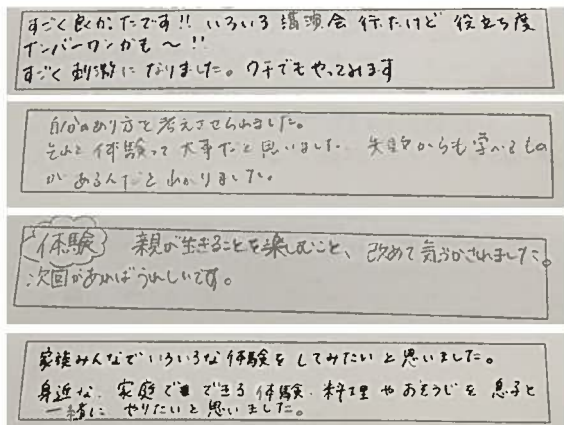 すごく良かったです!! いろいろ講演会行ったけど 役立ち度
ナンバーワンかも〜!!
すごく刺激になりました。ウチでもやってみます
自分のあり方を考えさせられました。
それと体験って大事だと思いました。失敗からも学べるもの
があるんだとわかりました。
体験 親が生きることを楽しむこと、改めて気づかされました。
次回があればうれしいです。
家族みんなでいろいろな体験をしてみたいと思いました。
身近な、家庭でできる体験、料理やおそうじを息子と
一緒にやりたいと思いました。